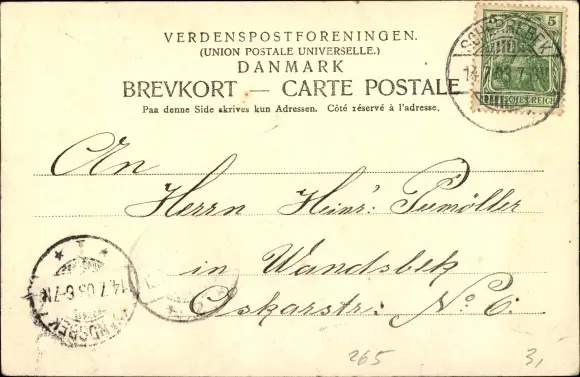 VERDENSPOSTFORENINGEN.
(UNION POSTALE UNIVERSELLE.)
DANMARK
BREVKORT — CARTE POSTALE
Paa denne Side skrives kun Adressen. Côté réservé à l'adresse.
5
SCHERREBEK
14.7.03 7
DEUTSCHES REICH
An
Herrn Heinr: Peemöller
in Wandsbek
Oskarstr: No 6.
* T *
14.7.03 6-7N
WANDSBEK
265
3,